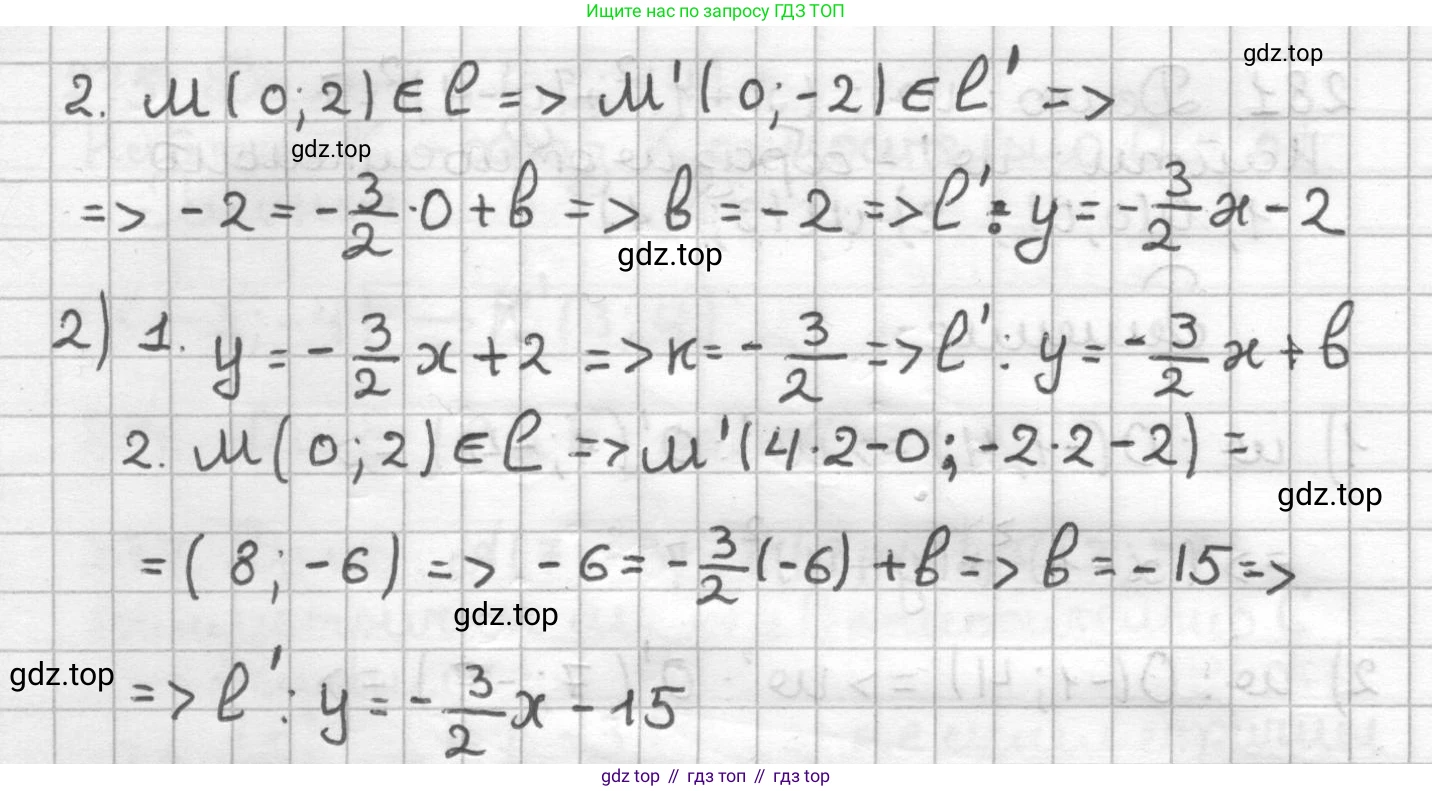 Ищите нас по запросу ГДЗ ТОП
gdz.top
2. M(0;2)∈l => M'(0;-2)∈l' =>
gdz.top
=> -2 = -3/2·0+b => b = -2 => l': y = -3/2x-2
gdz.top
2) 1. y = -3/2x+2 => k = -3/2 => l': y = -3/2x+b
2. M(0;2)∈l => M'(4·2-0;-2·2-2) =
gdz.top
= (8;-6) => -6 = -3/2(-6)+b => b = -15 =>
gdz.top
gdz.top
=> l': y = -3/2x-15
gdz top // гдз топ // gdz.top